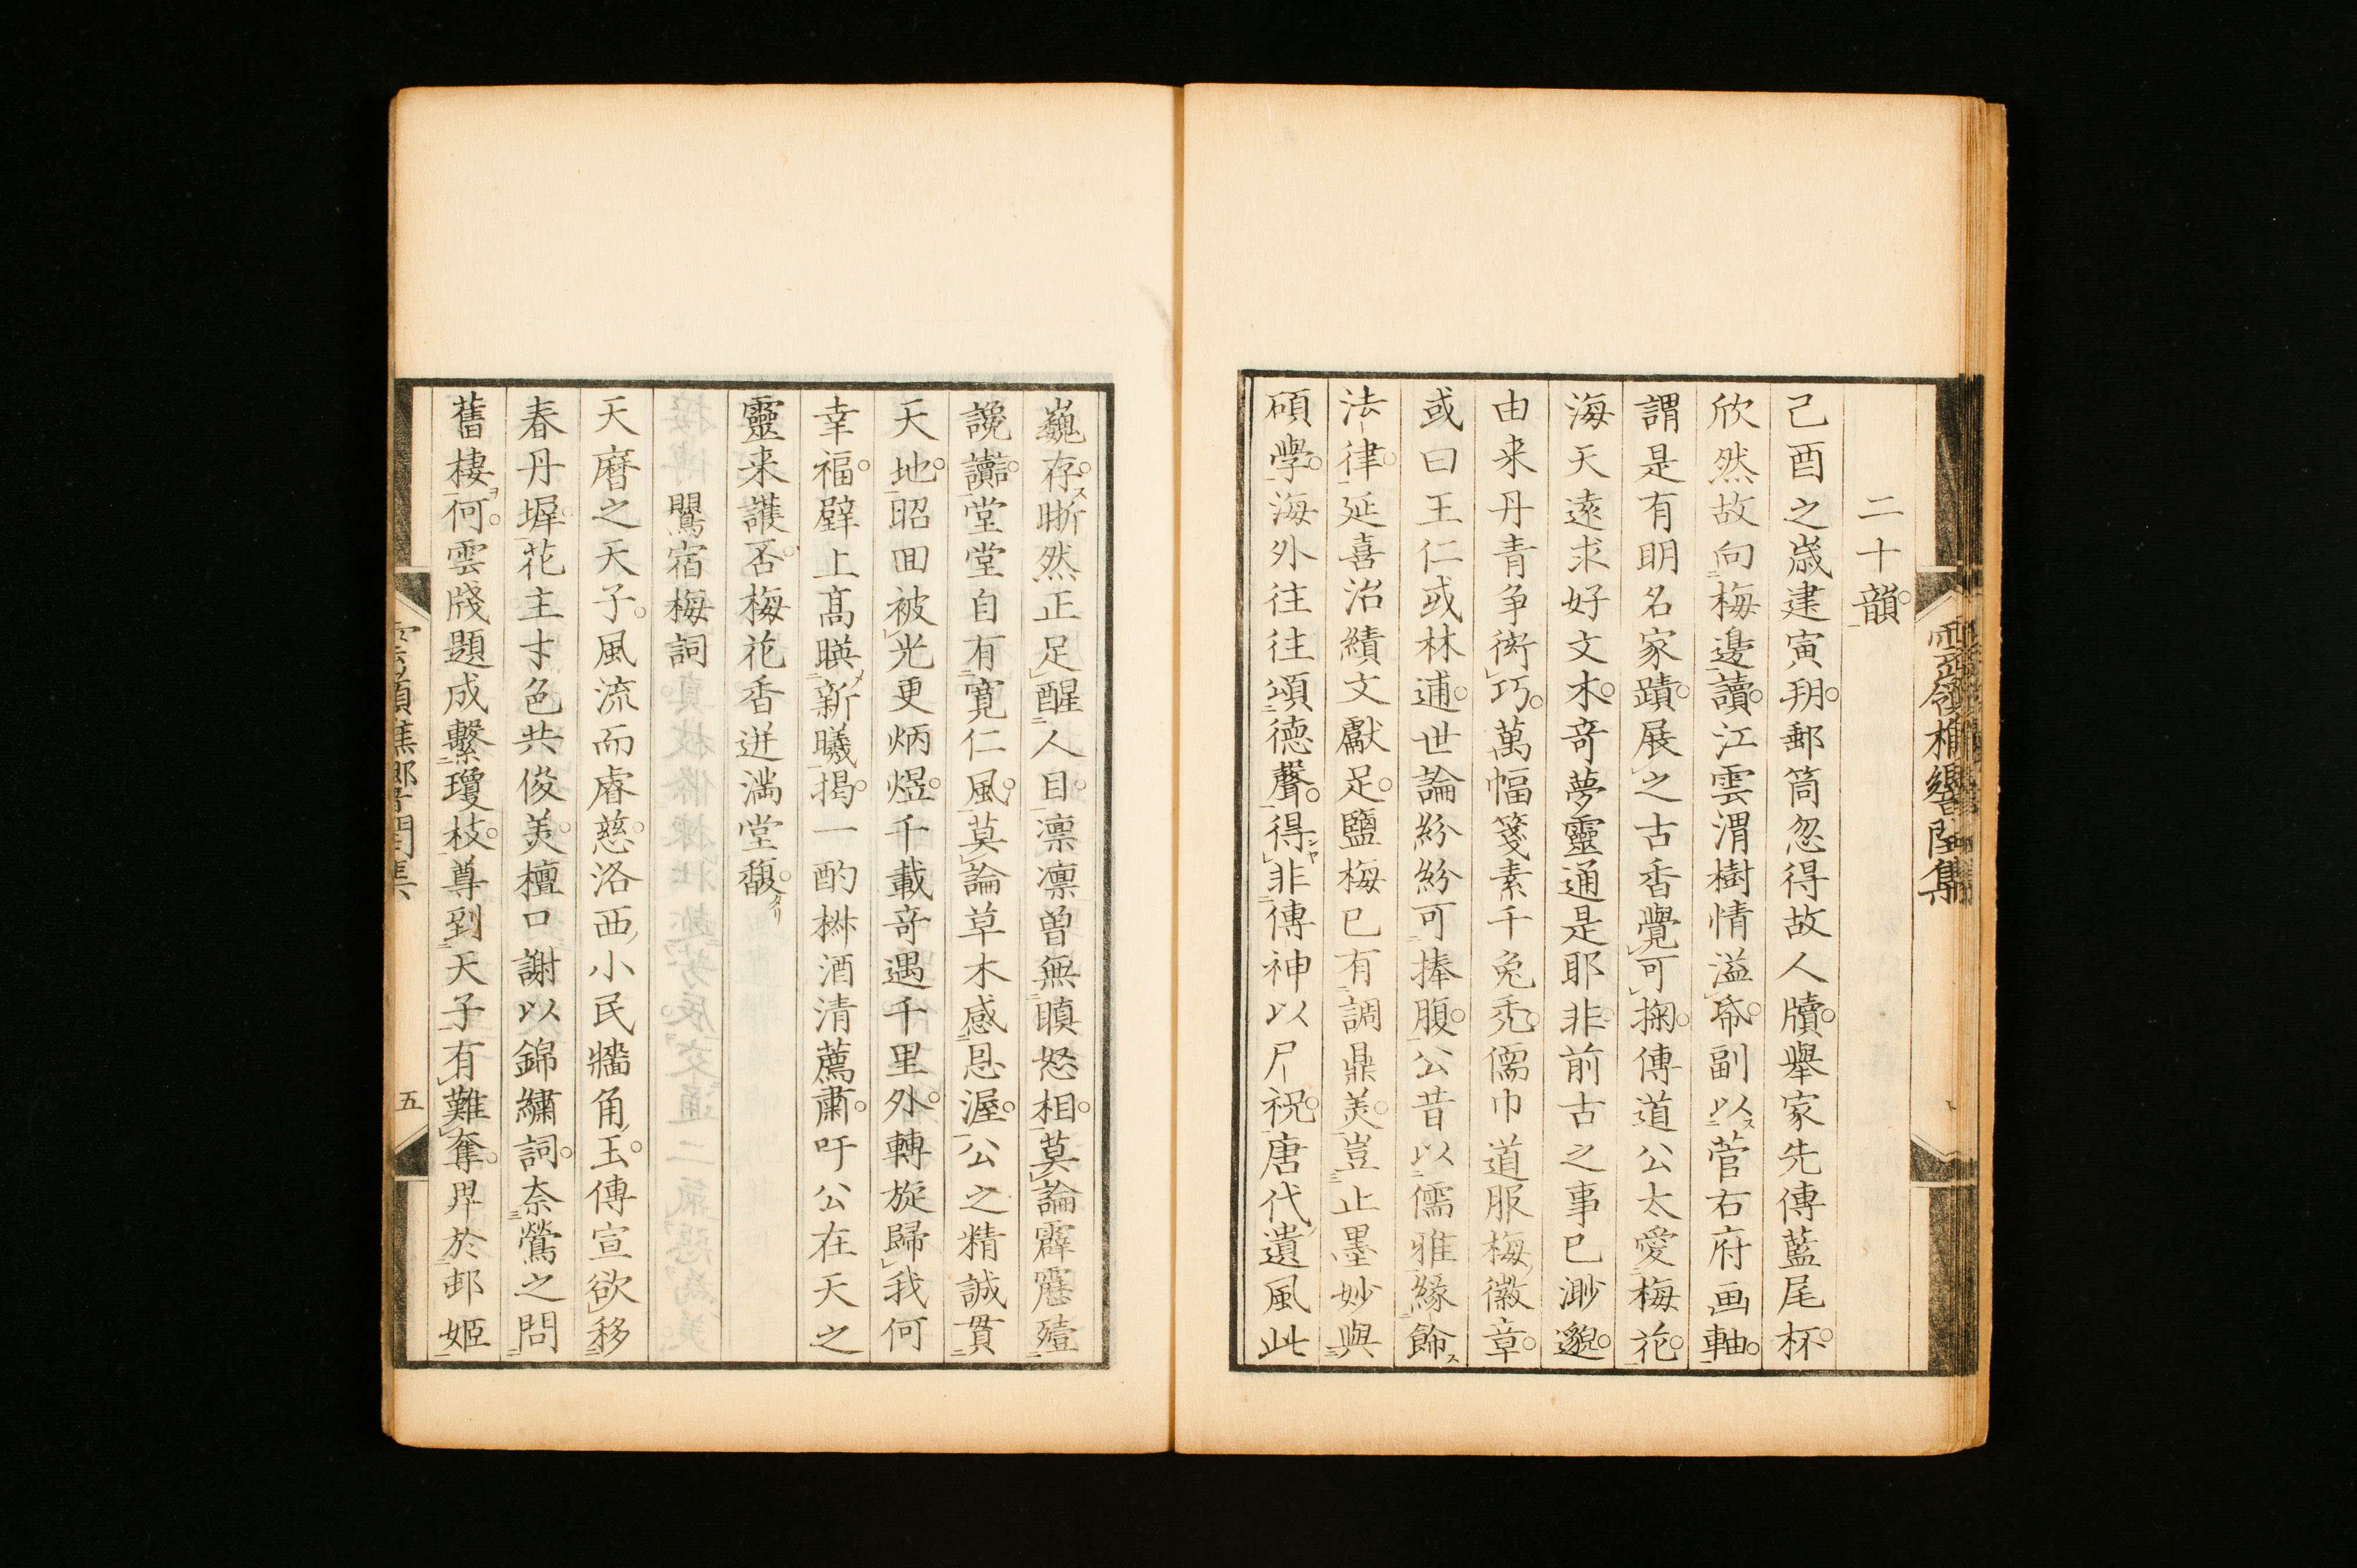 二十韻
己酉之歳建寅朔郵筒忽得故人牘舉家先傳藍尾杯
欣然故向梅邊讀江雲渭樹情溢帋副以菅右府画軸
謂是有明名家蹟展之古香覺可掬傳道公太愛梅花
海天遠求好文木竒夢靈通是耶非前古之事已渺邈
由来丹青争衒巧萬幅箋素千兔禿儒巾道服梅徽章
或曰王仁或林逋世論紛紛可捧腹公昔以儒雅縁飾
法律延喜治績文獻足鹽梅已有調鼎美豈止墨妙與
碩學海外往往頌德聲得非傳神以尸祝唐代遺風此
巍存晣然正足醒人目凛凛曽無瞋怒相莫論霹靂殪
讒讟堂堂自有寛仁風莫論草木感恩渥公之精誠貫
天地昭回被光更炳煜千載竒遇千里外轉旋歸我何
幸福壁上髙暎新曦揭一酌椕酒清薦肅吁公在天之
靈来護否梅花香迸滿堂馥
鸎宿梅詞
天暦之天子風流而睿慈洛西小民牆角玉傳宣欲移
春丹墀花主才色共俊美檀口謝以錦繡詞奈鶯之問
舊棲何雲牋題成繫瓊枝尊到天子有難奪畀於邨姬
五